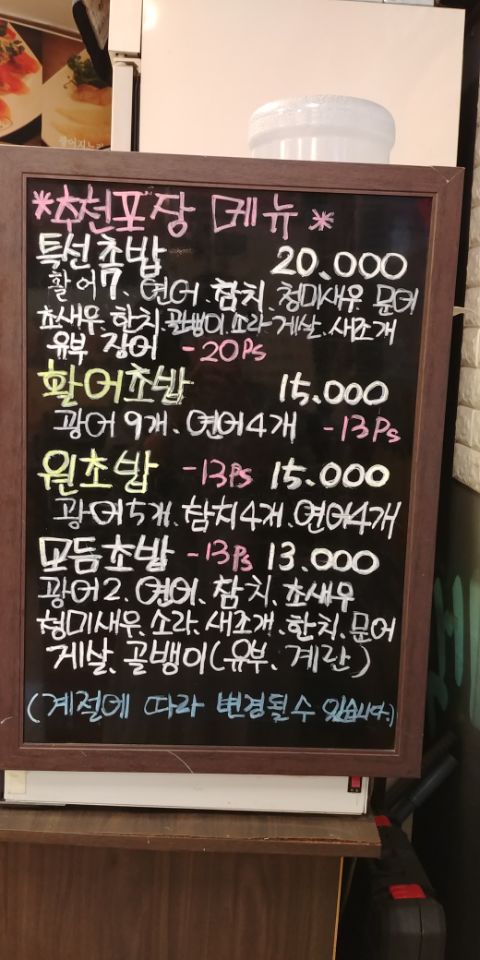 *추천포장 메뉴*
특선초밥 20.000
활어7. 연어.참치.청미새우.문어
초새우.한치.골뱅이.소라.게살.새조개
유부 장어 -20Ps
활어초밥 15.000
광어9개.연어4개 -13Ps
원초밥 -13Ps 15.000
광어5개.참치4개.연어4개
모듬초밥 -13Ps 13.000
광어2.연어.참치.초새우
청미새우.소라.새조개.한치.문어
게살.골뱅이(유부.계란)
(계절에 따라 변경될수 있습니다.)